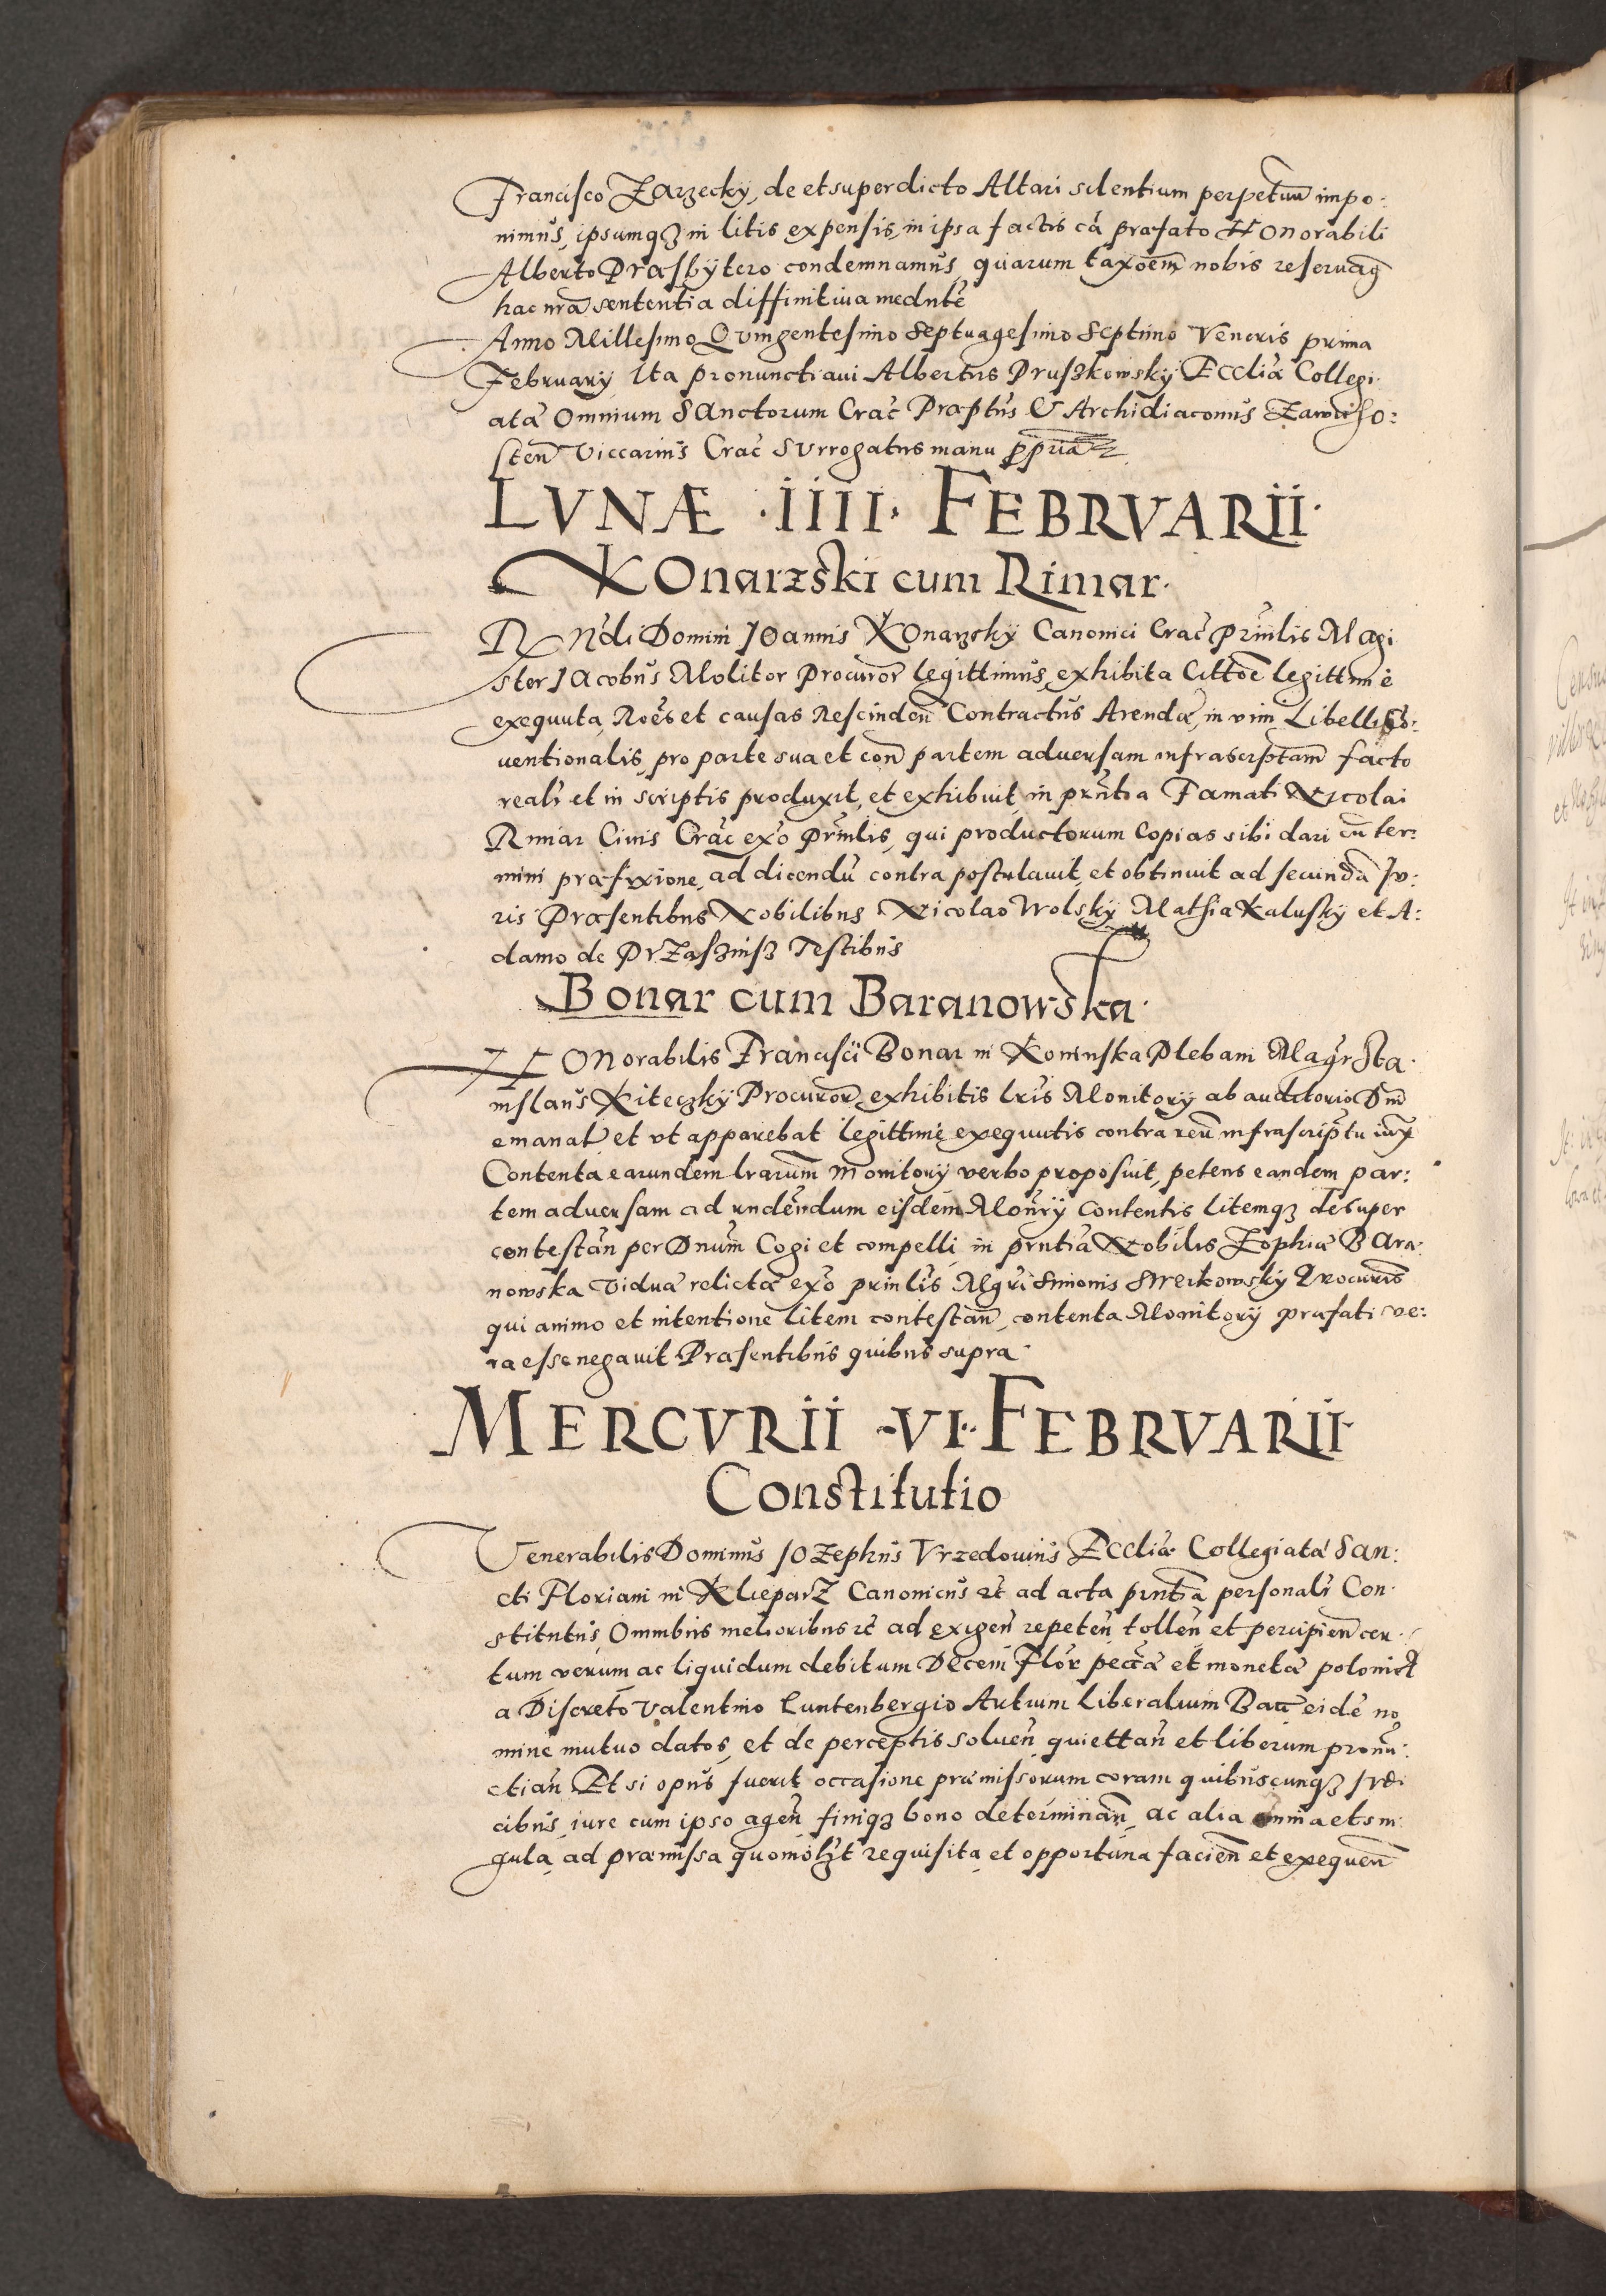 Francisco Zarzecky, de et super dicto Altari silentium perpetuũ impo:
nimus, ipsumqȝ in litis expensis, in ipsa factis cã præfato Honorabili
Alberto Præsbÿtero condemnamus, quarum taxoem̃ nobis reseruaṽ
hac nrã sententia diffinitiua mednte
Anno Millesimo Qvingentesimo Septuagesimo Septimo Veneris prima
Februarÿ Ita pronunctiaui Albertus Pruszkowskÿ Eccliæ Collegi
atæ Omnium SAnctorum Crac̃ Præptus & Archidiaconus Zawicho:
sten̄ Viccarius Crac̃ Svrrogatus manu ppria
LVNÆ ·IIII· FEBRVARII·
KOnarzski cum Rimar·
Rndi Domini IOannis KOnarskÿ Canonici Crac̃ Prinlis Magi
ster IAcobus Molitor Procuror̃ legittimus, exhibita Cittoẽ legittime
exequuta, Roẽs et causas Rescinden̄ Contractus Arendæ, in vim Libelli Co:
uentionalis, pro parte sua et con̄ partem aduersam infrascrptam̃ facto
realr̃ et in scriptis produxit, et exhibuit in prñtia Famati Nicolai
Rimar Ciuis Crac̃ exo prinlis, qui productorum Copias sibi dari cũ ter:
mini præfixione, ad dicendũ contra postulauit, et obtinuit ad secundã Iu:
ris Præsentibus Nobilibus Nicolao Wolskÿ Mathia Kaluskÿ et A:
damo de PrZaszinsz Testibus
Bonar cum Baranowska·
HONorabilis Francisci Bonar in Koninska Plebani Magr̃ Sta·
nislaus Kiteczkÿ Procuror̃ exhibitis lris Monitorÿ ab auditorio Dni
emanat̃ et vt apparebat legittime exequutis contra reũ infrascriptũ
Contenta earundem lrarum̃ Monitorÿ verbo proposuit, petens eandem par:
tem aduersam ad rndẽndum eisdem Monrÿ Contentis litemqȝ desuper
contestan̄ per Dnum̃ Cogi et compelli, in prntia Nobilis Zophiæ BAra·
nowska Viduæ relictæ exo prinlis Mgri Simonis Swerkowskÿ Procuris
qui animo et intentione litem contestan̄, contenta Monitorÿ præfati ve:
ra esse negauit Præsentibus quibus supra·
MERCVRII ·VI· FEBRVARII·
Constitutio
Venerabilis Dominus IOZephus Vrzedouius Eccliæ Collegiatæ SAn:
cti Floriani in KLieparZ Canonicus rc̃ ad acta prntia personalr̃ Con·
stitutus, Omnibus melioribus rc̃ ad exigen̄ repeten̄ tollen̄ et percipien̄ cer·
tum verum ac liquidum debitum Decem Flor̃ peccæ et monetæ polonict̃
a Discreto Valentino Luntenbergio Artium Liberalium Bacc̃ eidẽ no
mine mutuo datos, et de perceptis soluen̄ quiettan̄ et liberum pronũ:
ctian̄ Et si opus fuerit occasione præmissorum coram quibuscunqȝ Iudi
cibus, iure cum ipso agen̄ finiqȝ bono determinan̄, ac alia omnia et sin
gula, ad præmissa quomolzt requisita et opportuna facien̄ et exequen̄